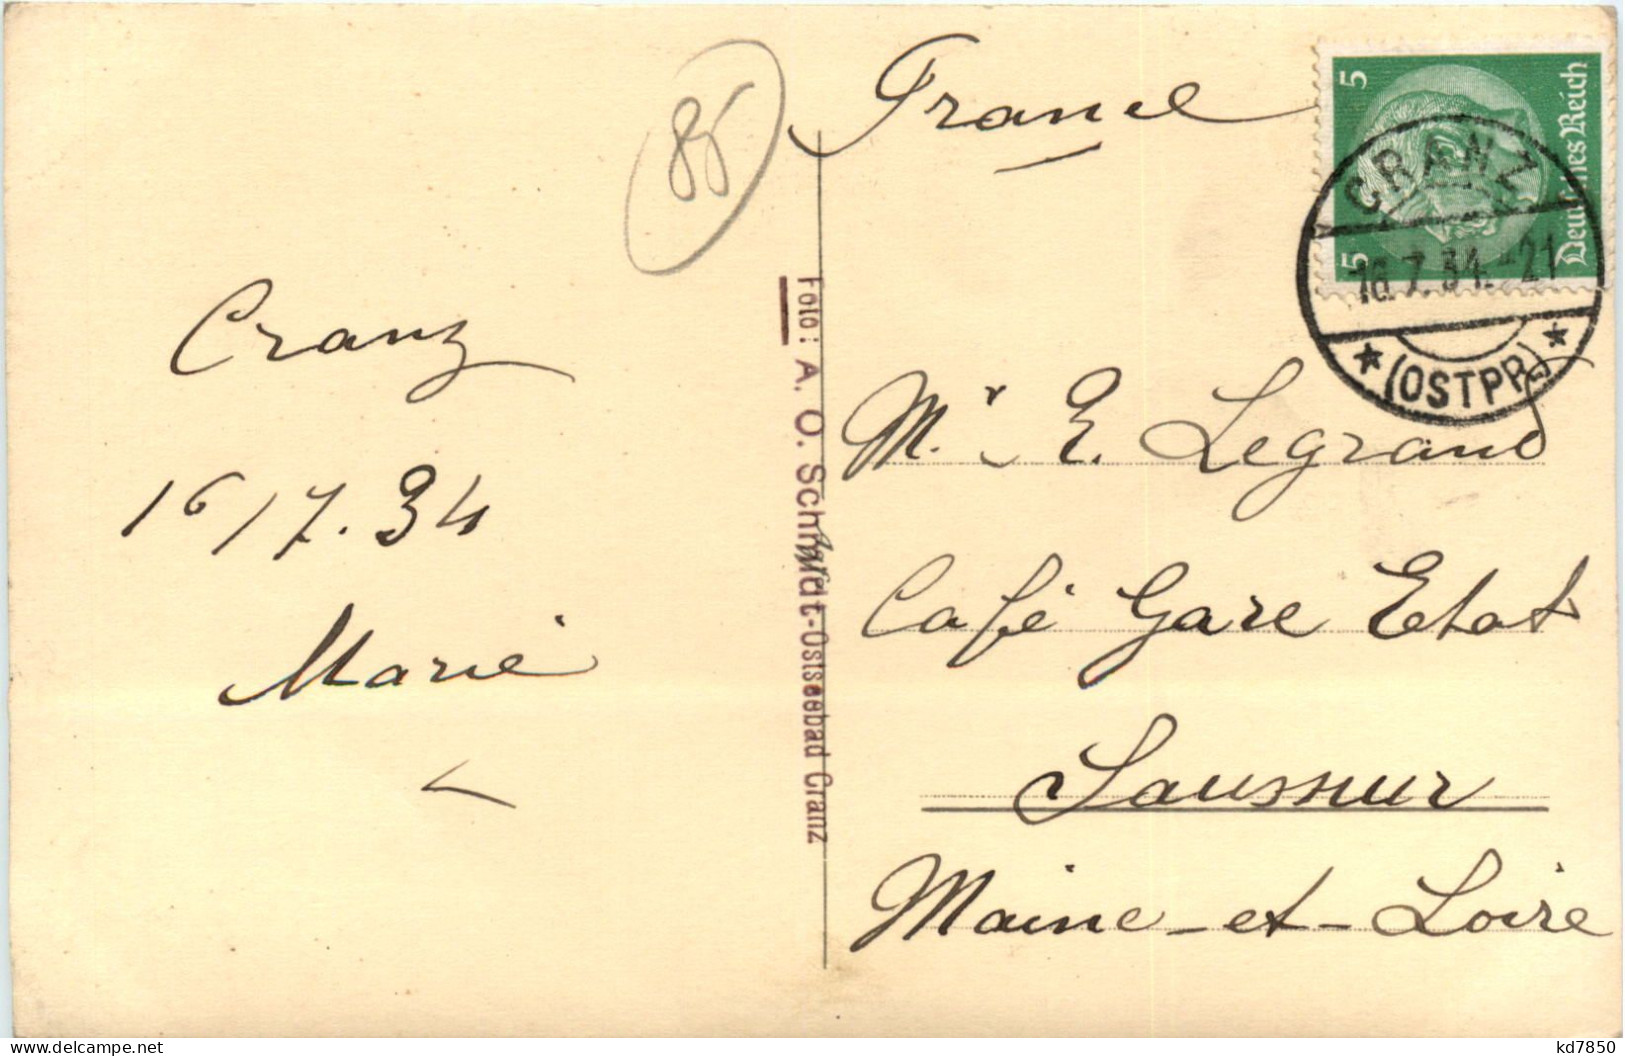 85
France
5
5
Deutsches Reich
CRANZ
16.7.34.-21
(OSTPR)
Cranz
16/7.34
Marie
Foto: A. O. Schmidt-Ostseebad Cranz
Mr E. Legrand
Café Gare Etat
Saumur
Maine-et-Loire
delcampe.net
kd7850